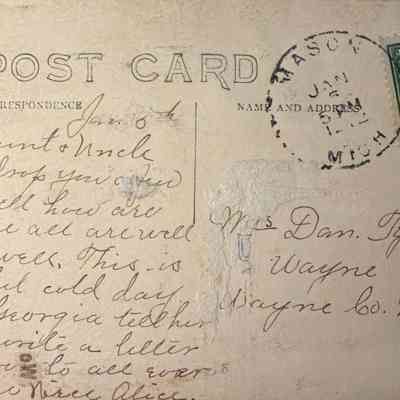 POST CARD
RESPONDENCE
NAME AND ADDRESS
MASON
JAN
MICH
Jan 6th
unt & Uncle
drop you a few
ell how are
e all are well
well. This is
ul cold day
Georgia tell her
write a letter
to all ever
Niece Alice.
Mrs Dan.
Wayne
Wayne Co.